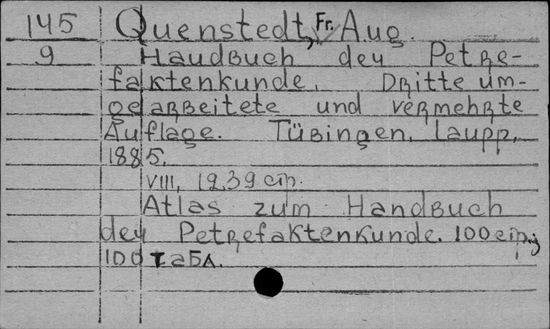 145 Quenstedt, Fr. Aug.
9 Haudbuch deu Petre-
faktenkunde. Dritte um-
gearbeitete und vermehrte
Auflage. Tübingen, Laupp,
1885.
VIII, 1239 cтр.
Atlas zum Handbuch
deu Petrefaktenkunde. 100 cтр.;
100 табл.